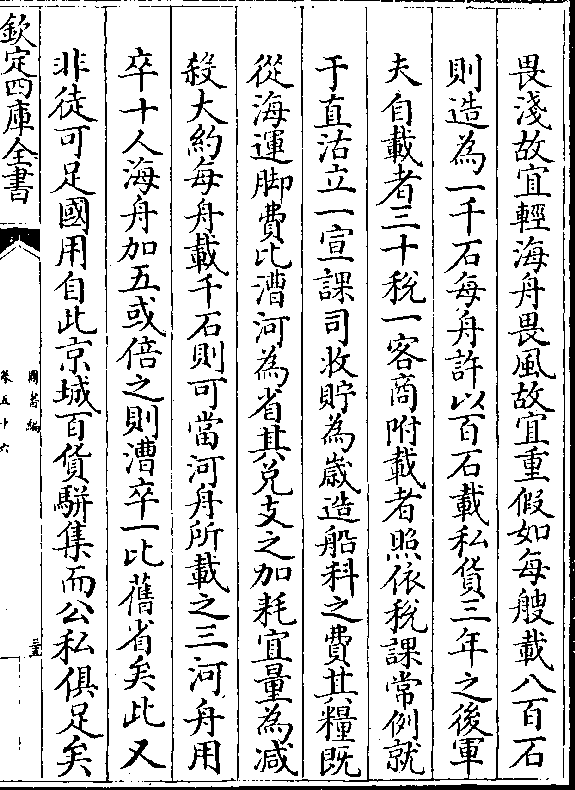 畏淺故宜輕海舟畏風故宜重假如每艘載八百石
則造為一千石每舟許以百石載私貨三年之後軍
夫自載者三十税一客商附載者照依税課常例就
于直沽立一宣課司收貯為歲造船科之費其糧既
從海運脚費比漕河為省其兑支之加耗宜量為減
殺大約每舟載千石則可當河舟所載之三河舟用
卒十人海舟加五或倍之則漕卒一比舊省矣此又
非徒可足國用自此京城百貨駢集而公私俱足矣
欽定四庫全書
圖書編
卷五十六